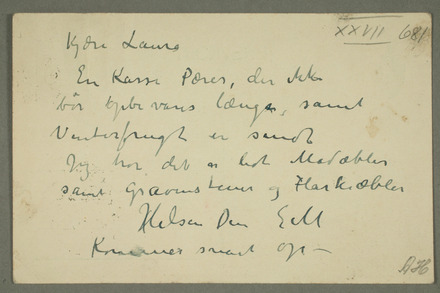 XXVII 681
Kjære Laura
En Kasse Pærer, der ikke
bør opbevares længe, samt
Vinterfrugt er sendt
Jeg tror det er lidt Madæbler
samt Gravenstener og Flaskeæbler
Hilsen Din
Kommer snart op –